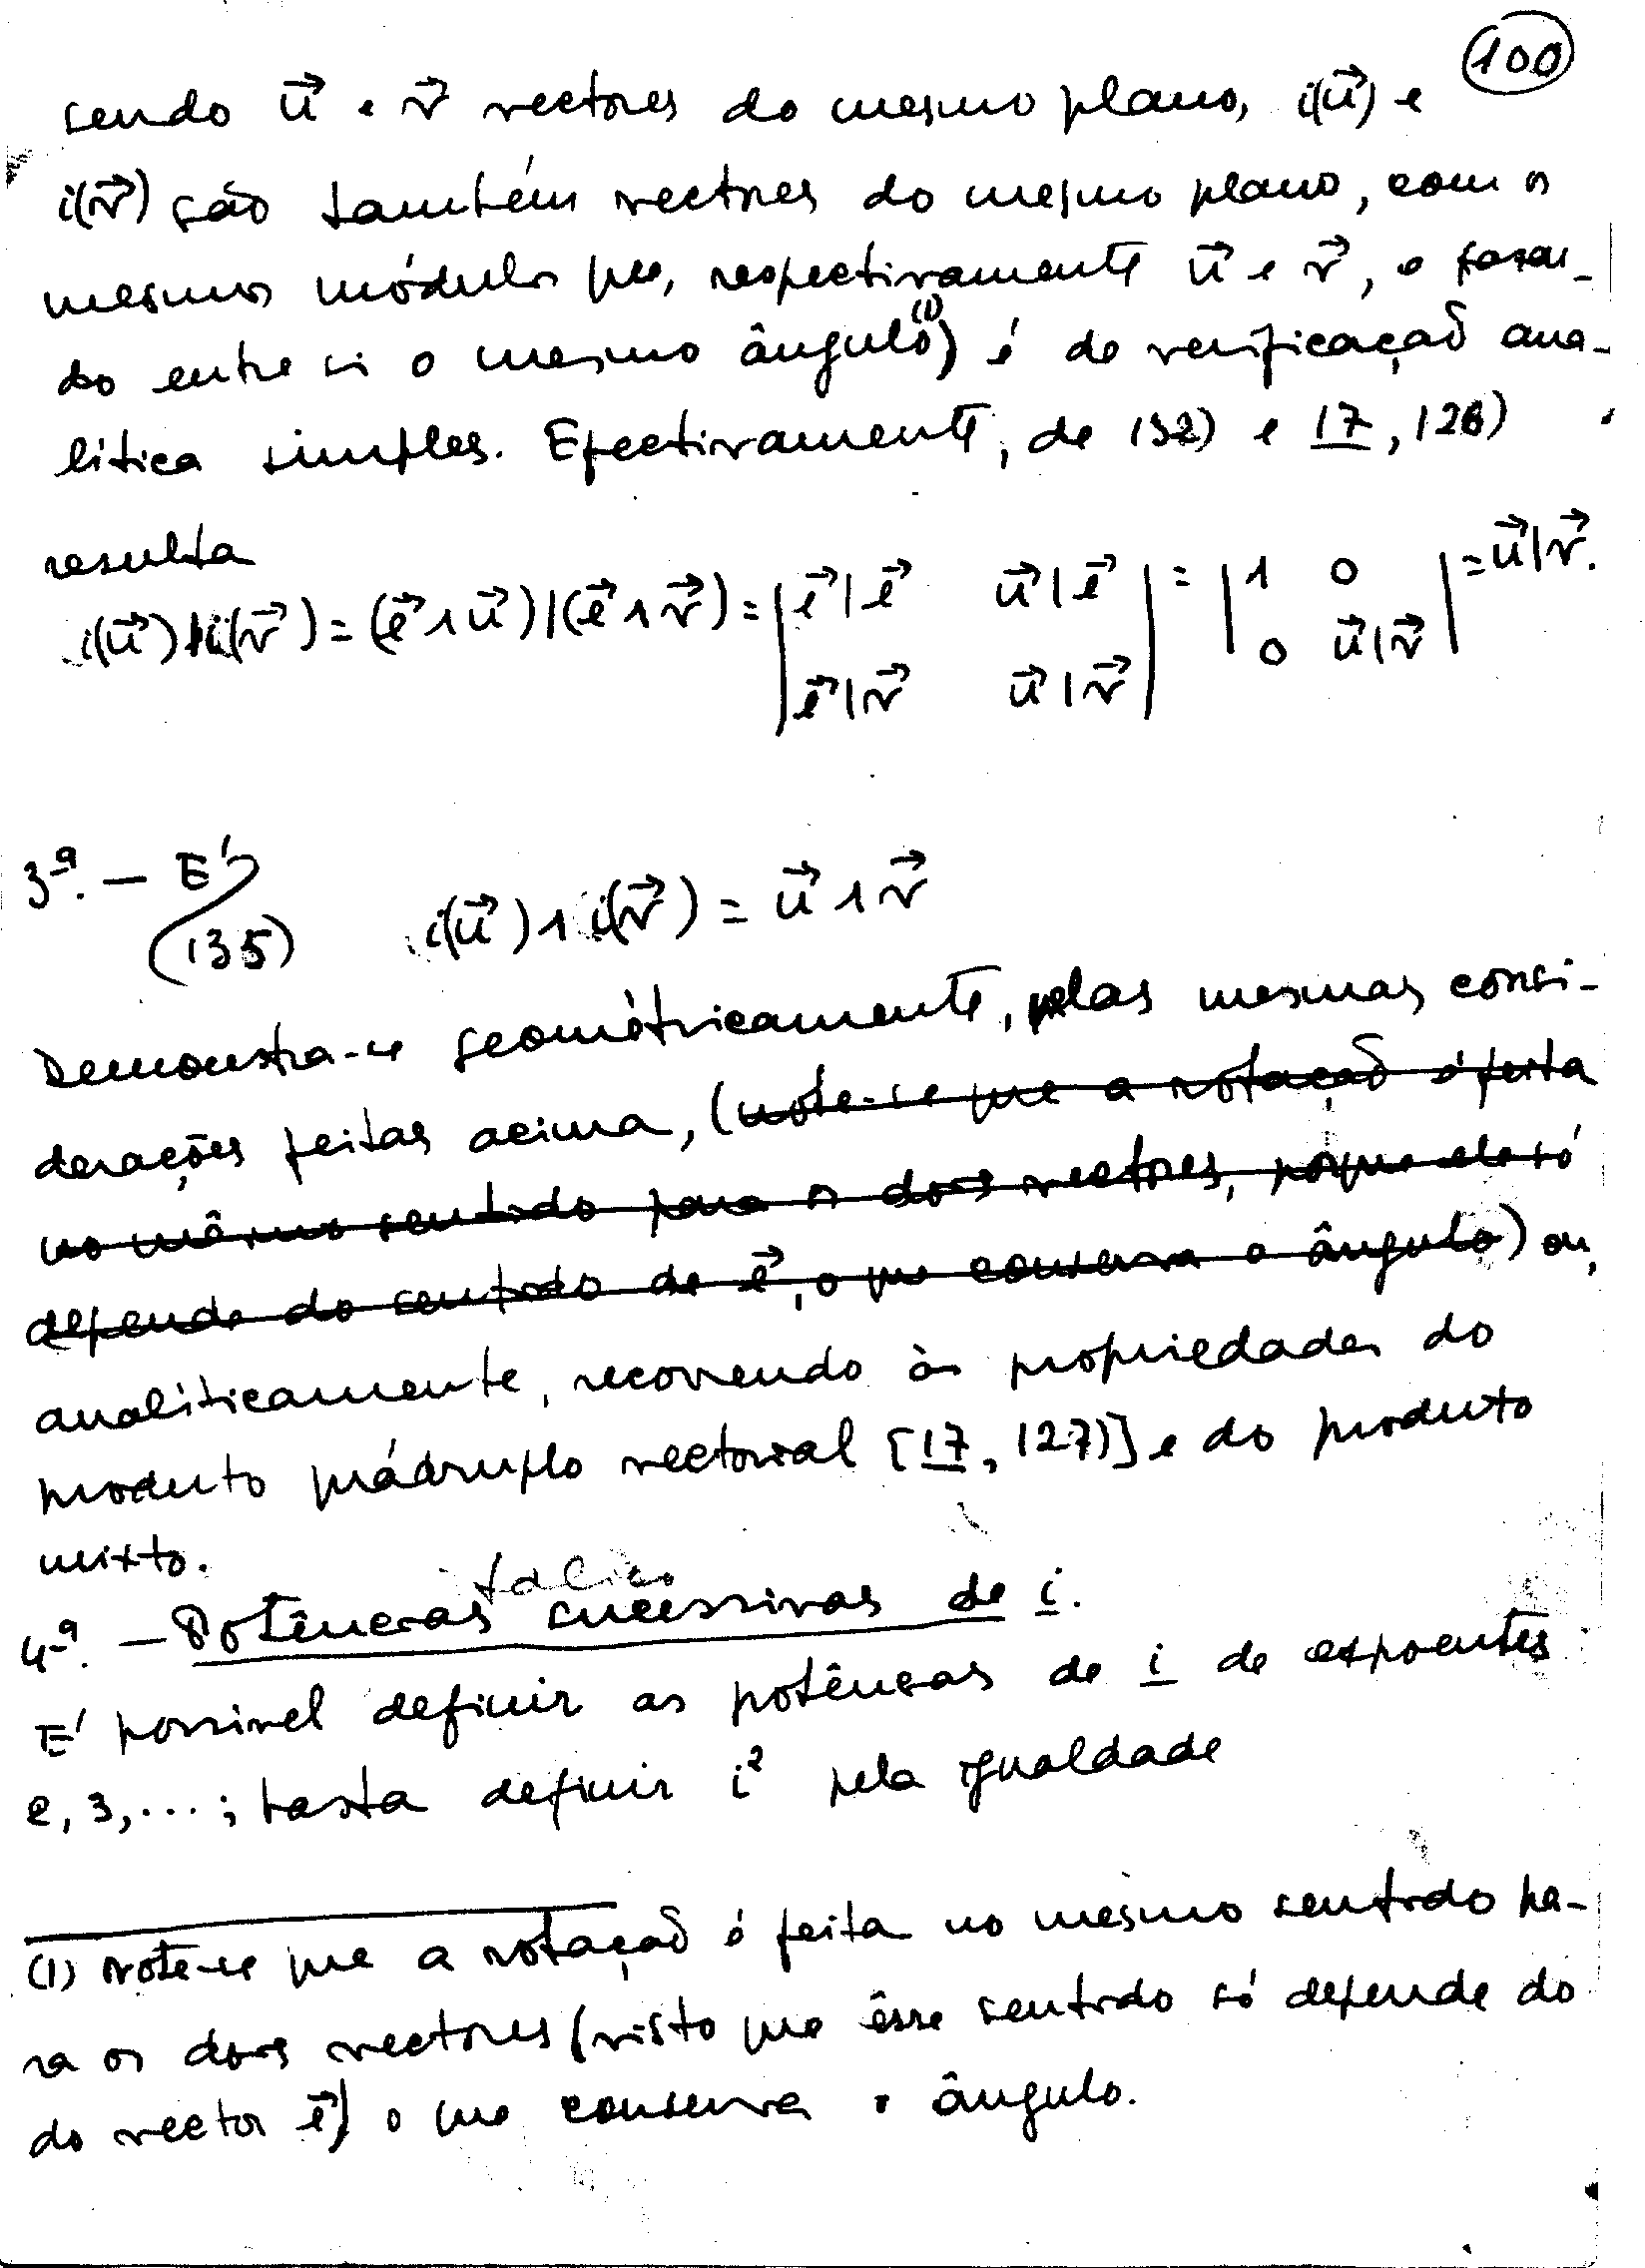 100
sendo u⃗ e v⃗ vectores do mesmo plano, i(u⃗) e
i(v⃗) são também vectores do mesmo plano, com os
mesmos módulos que, respectivamente u⃗ e v⃗, e fazen-
do entre si o mesmo ângulo(1)) é de verificação ana-
lítica simples. Efectivamente, de 132) e 17, 126)
resulta
i(u⃗)|i(v⃗) = (e⃗∧u⃗)|(e⃗∧v⃗) = |e⃗|e⃗ u⃗|e⃗| = |1 0| = u⃗|v⃗.
|e⃗|v⃗ u⃗|v⃗| |0 u⃗|v⃗|
3ª. — É
(135) i(u⃗)∧i(v⃗) = u⃗∧v⃗
Demonstra-se geométricamente, pelas mesmas consi-
derações feitas acima, (note-se que a rotação é feita
no mêsmo sentido para os dois vectores, porque ele só
depende do sentido de e⃗, o que conserva o ângulo) ou,
analíticamente, recorrendo às propriedades do
produto quádruplo vectorial [17, 127)] e do produto
mixto.
4ª. — Potências sucessivas de i.
É possível definir as potências de i de expoentes
2, 3, ...; basta definir i² pela igualdade
(1) Note-se que a rotação é feita no mesmo sentido pa-
ra os dois vectores (visto que êsse sentido só depende do
do vector e⃗) o que conserva o ângulo.